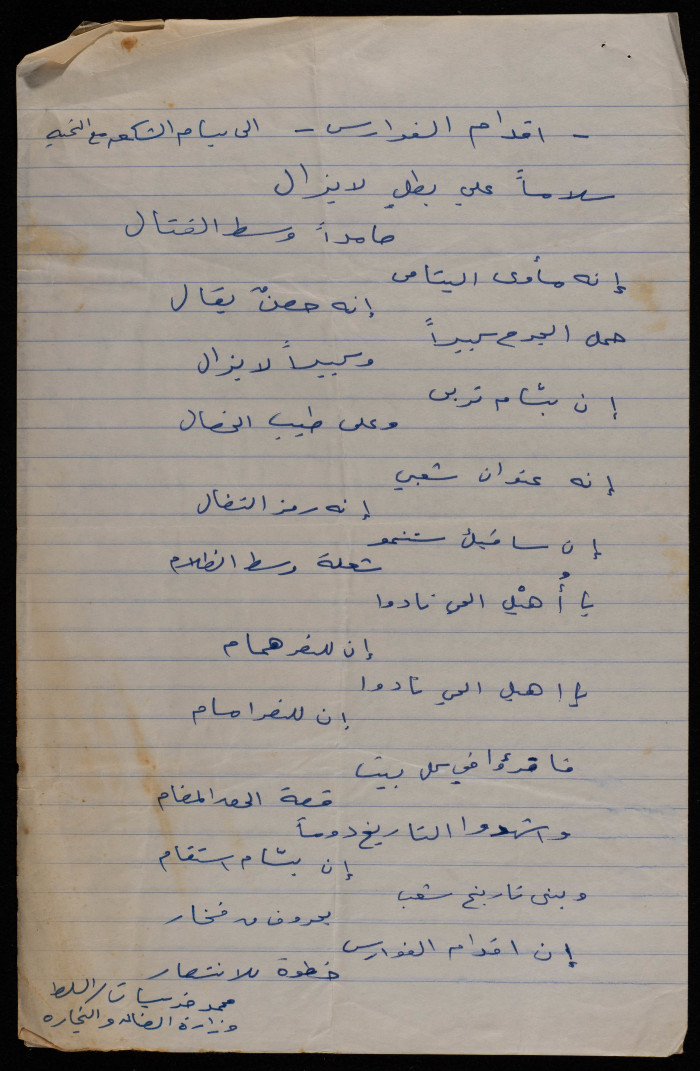 - اقدام الفوارس - الى بسام الشكعه مع التحيه
سلاماً على بطلٍ لايزال
صامداً وسط القتال
إنه مأوى اليتامى
إنه حصنٌ يقال
حمل الجرح كبيراً
وكبيراً لايزال
إن بسّام تربى
وعلى طيب الخصال
إنه عنوان شعبي
إنه رمز النضال
إن ساقيك ستنمو
شعلة وسط الظلام
يا أُهيْل الحي نادوا
إن للنصر همام
يا اهل الحي نادوا
إن للنصر امام
فاقرؤا في كل بيت
قصة الحصر المقام
واشهدوا التاريخ دوماً
إن بسّام استقام
وبنى تاريخ شعب
بحروف من فخار
إن اقدام الفوارس
خطوة للانتصار
محمد خريسات / السلط
وزارة الصناعه والتجاره